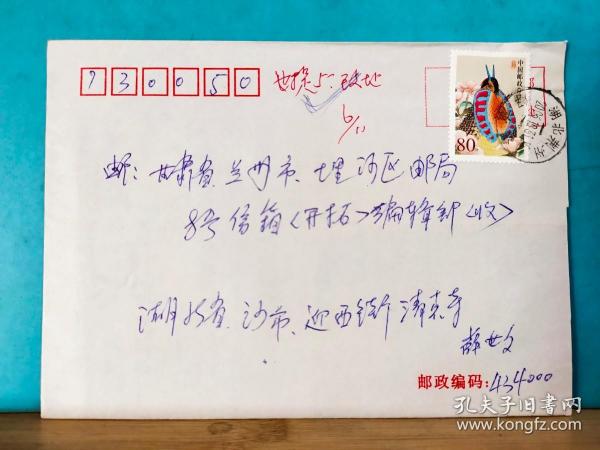 730050
中国邮政
80
邮:甘肃省、兰州市、七里河区邮局
8号信箱《开拓》编辑部(收)
湖北省、沙市、迎西街清真寺
邮政编码:434000
孔夫子旧书网
www.kongfz.com